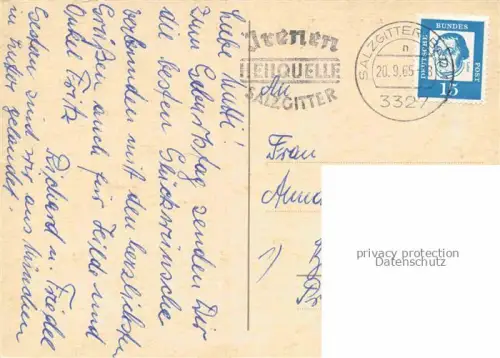 Liebe Mutti!
Zum Geburtstag senden Dir
die besten Glückwünsche
verbunden mit den herzlichsten
Grüßen auch für Hilde und
Onkel Fritz
Richard u. Friedel
Gestern sind wir aus München
gelandet.
HEILQUELLE
SALZGITTER
An
SALZGITTER
n
20.9.65
3327
DEUTSCHE
BUNDES
POST
15
Frau
privacy protection
Datenschutz